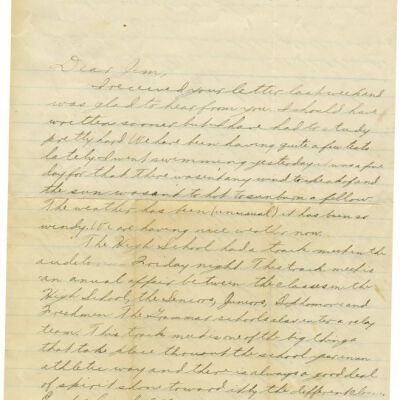 Dear Jim,
I received your letter last weekend
was glad to hear from you. I should have
written sooner but I have had to study
pretty hard We have been having quite a few tests
lately. I went swimming yesterday it was a fine
day for that there wasen't any wind to speak of and
the sun wasn't to hot to sunburn a fellow
The weather has been (unusual) it has been so
windy. We are having nice weather now.
The High School had a track meet in the
Friday night. This track meet is
an anual affair between the classes in the
High School, the Seniors, Juniors, Sophomores and
Freshmen the Grammar schools also enter a relay
team. This track meet is one of the big things
that take place thruout the school year in an
athletic way and there is always a good deal
of spirit shown toward it by the different